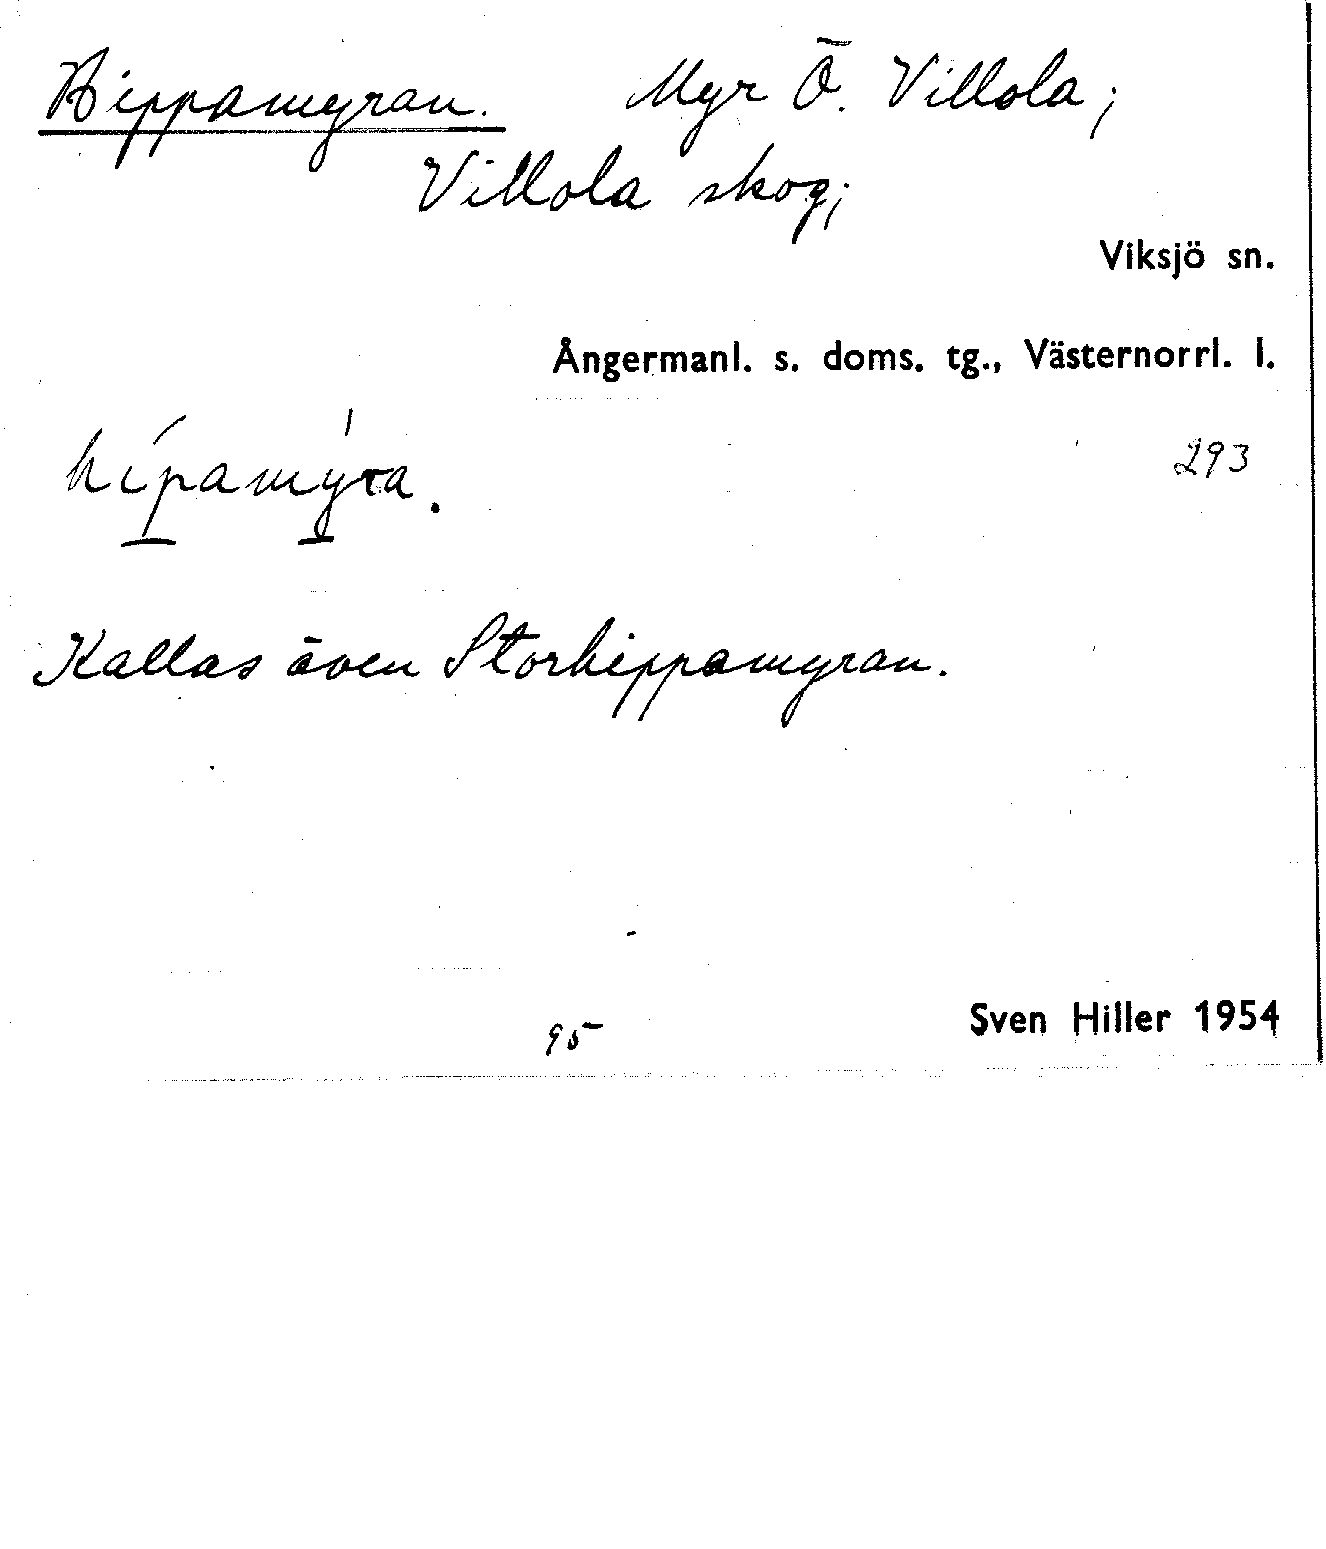 Hippamyran. Myr Ö. Villola;
Villola skog;
Viksjö sn.
Ångermanl. s. doms. tg., Västernorrl. l.
hípamýra. 293
Kallas även Storhippamyran.
95 Sven Hiller 1954